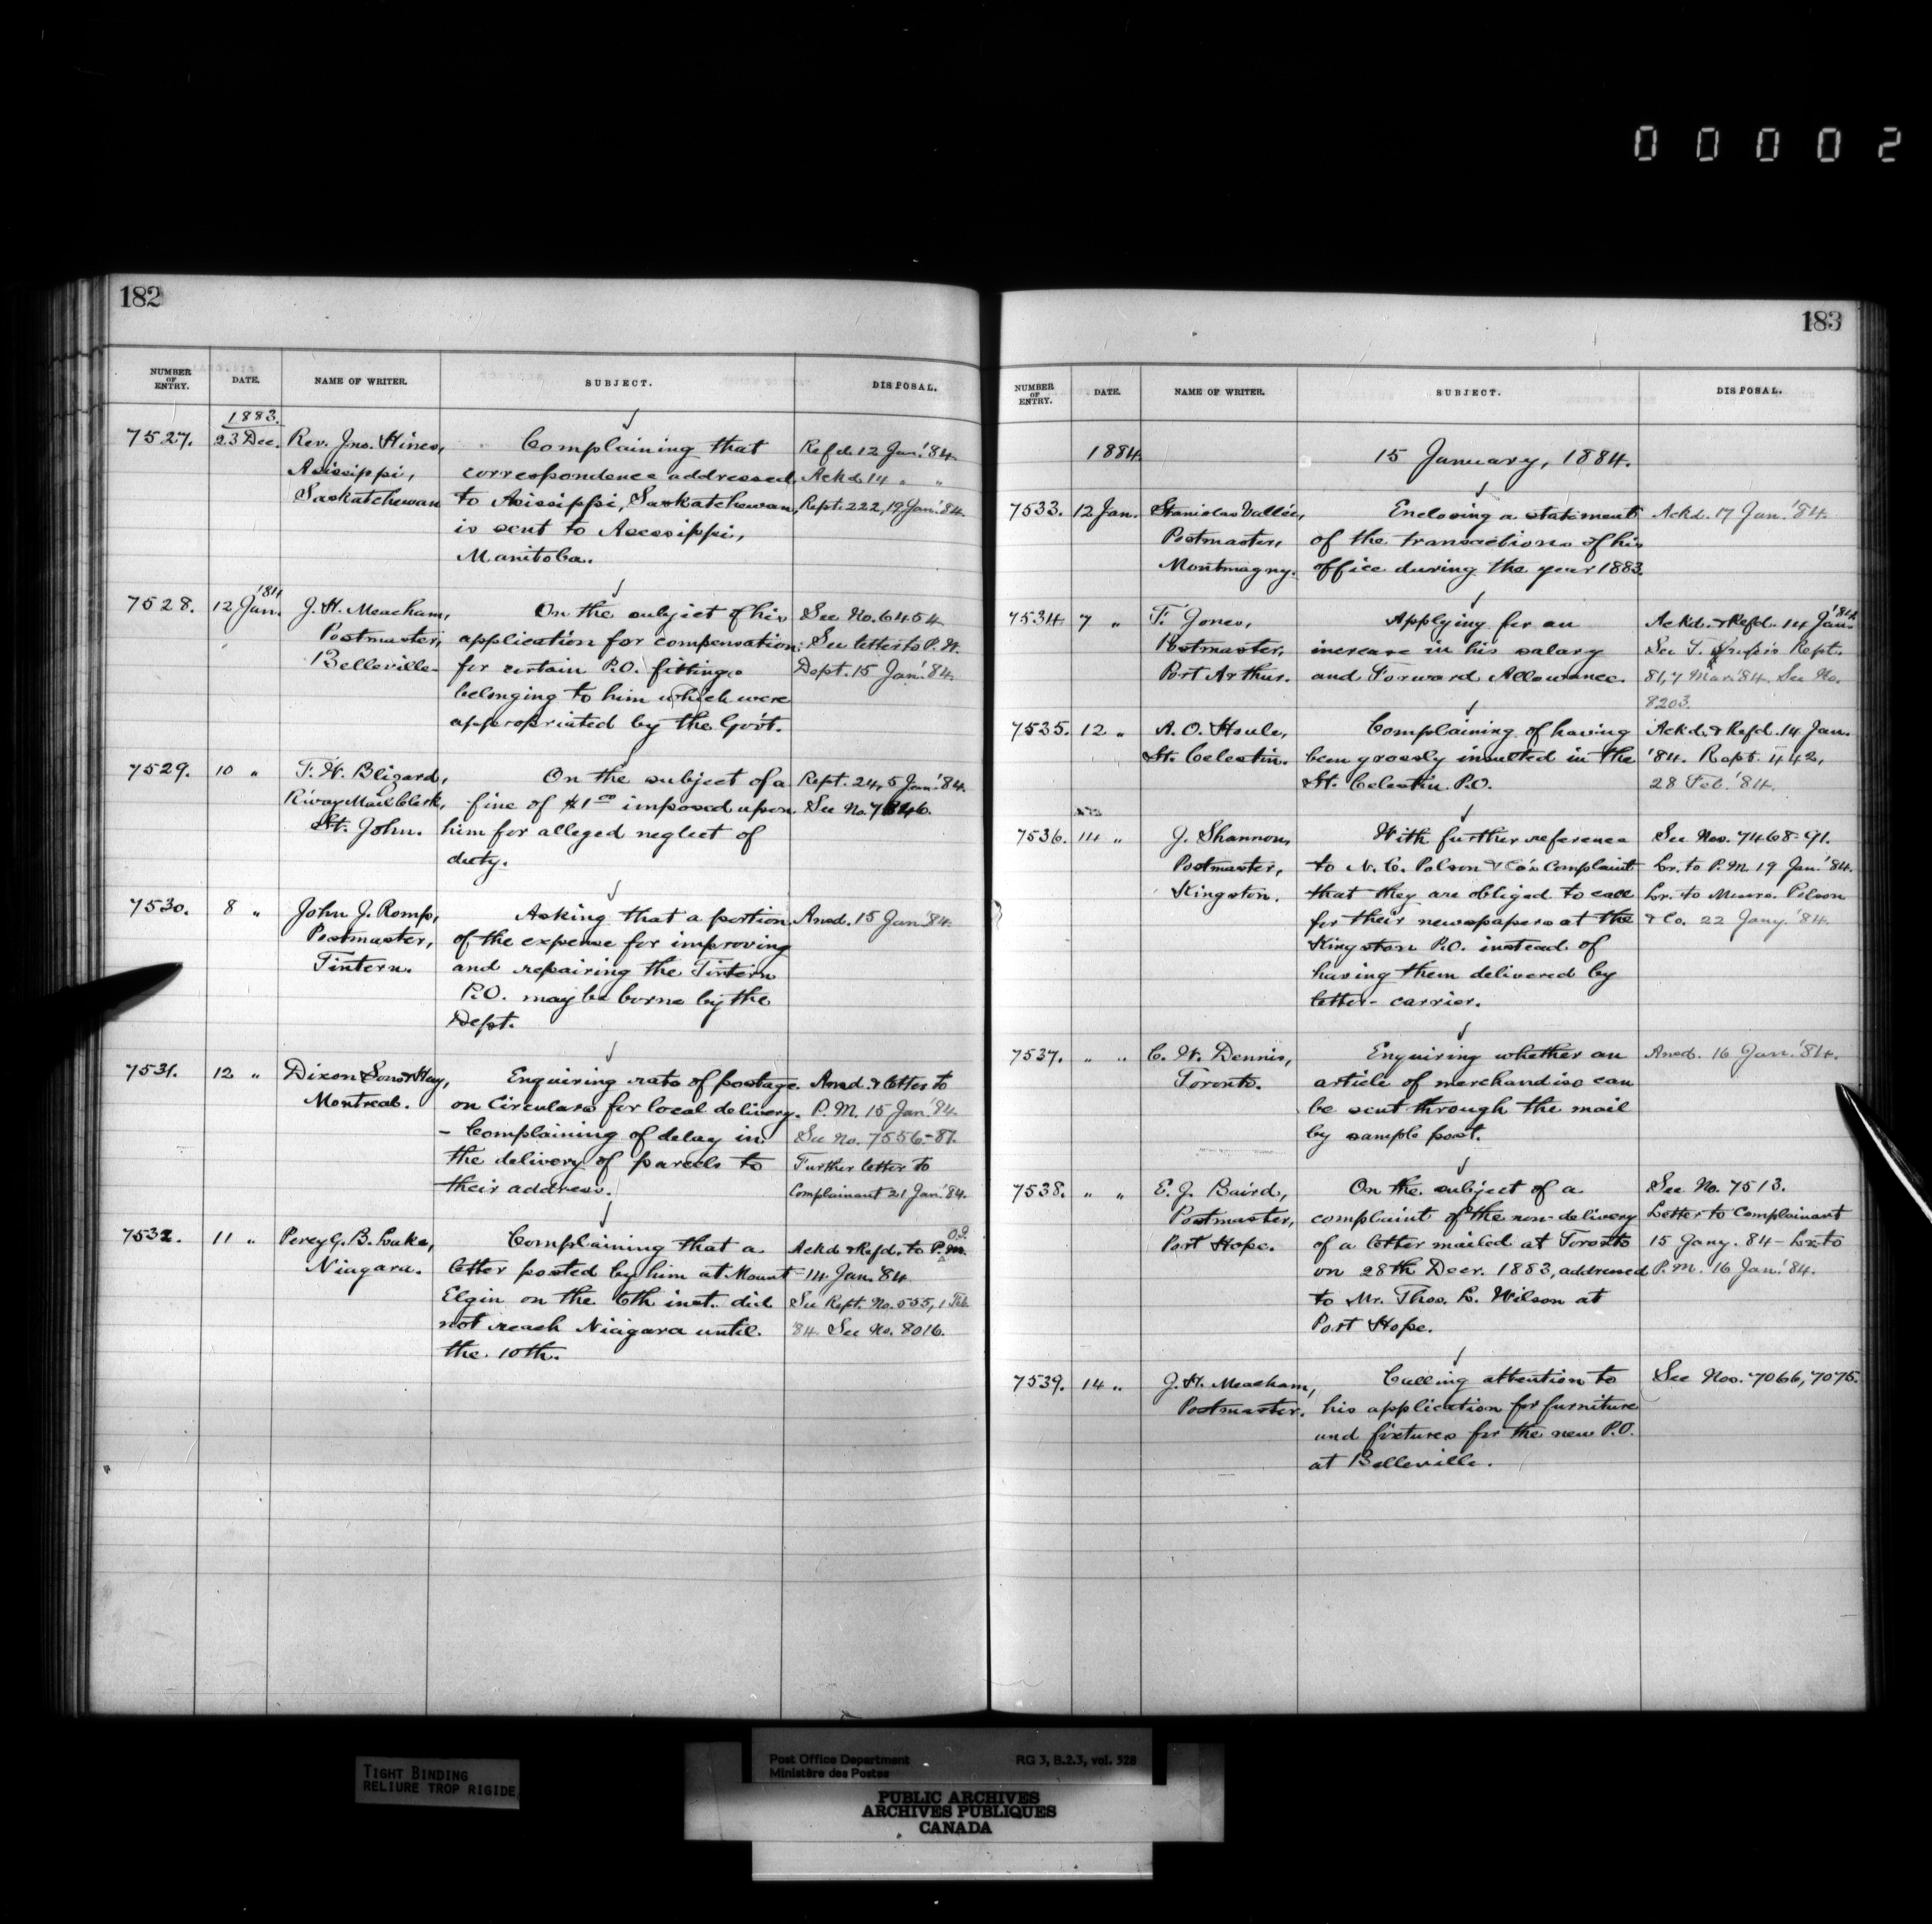 00002
182
NUMBER OF ENTRY. DATE. NAME OF WRITER. SUBJECT. DISPOSAL.
1883.
7527. 23 Dec. Rev. Jno. Hines, Complaining that Refd. 12 Jan. '84.
Asissippi, correspondence addressed Ackd. 14 " "
Saskatchewan to Asissippi, Saskatchewan, Rept. 222, 19 Jan. '84.
is sent to Asessippi,
Manitoba.
'84
7528. 12 Jan. J. H. Meacham, On the subject of his See No. 6454
Postmaster, application for compensation See letter to P. W.
Belleville for certain P.O. fittings Dept. 15 Jan. '84.
belonging to him which were
appropriated by the Govt.
7529. 10 " F. W. Blizard, On the subject of a Rept. 24, 5 Jan. '84.
R'way Mail Clerk, fine of $1 00 imposed upon See No.
St. John. him for alleged neglect of
duty.
7530. 8 " John J. Romp, Asking that a portion Ansd. 15 Jan. '84.
Postmaster, of the expense for improving
Tintern. and repairing the Tintern
P.O. may be borne by the
Dept.
7531. 12 " Dixon Sons & Hay, Enquiring rate of postage Ansd. & letter to
Montreal. on Circulars for local delivery. P. M. 15 Jan. '84
- Complaining of delay in See No. 7556-87.
the delivery of parcels to Further letter to
their address. Complainant 21 Jan. '84.
7532. 11 " Percy G. B. Luke, Complaining that a Ackd. & Refd. to P.O.
Niagara. letter posted by him at Mount 14 Jan. '84
Elgin on the 6th inst. did See Rept. No. 555, 1 Feb.
not reach Niagara until '84. See No. 8016.
the 10th.
183
NUMBER OF ENTRY. DATE. NAME OF WRITER. SUBJECT. DISPOSAL.
1884. 15 January, 1884.
7533. 12 Jan. Stanislas Vallée, Enclosing a statement Ackd. 17 Jan. '84.
Postmaster, of the transactions of his
Montmagny. office during the year 1883.
7534. 7 " F. Jones, Applying for an Ackd. & Refd. 14 Jan. '84
Postmaster, increase in his salary See Rept.
Port Arthur. and Forward Allowance. 81, 7 Mar. '84. See No.
8203.
7535. 12 " A. O. Houle, Complaining of having Ackd. & Refd. 14 Jan.
St. Celestin. been grossly insulted in the '84. Rept. 442,
St. Celestin P.O. 28 Feb. '84.
7536. 14 " J. Shannon, With further reference See Nos. 7468-91.
Postmaster, to N. C. Polson & Co's Complaint Lr. to P.M. 19 Jan. '84.
Kingston. that they are obliged to call Lr. to Messrs. Polson
for their newspapers at the & Co. 22 Jany. '84.
Kingston P.O. instead of
having them delivered by
letter-carrier.
7537. " " C. W. Dennis, Enquiring whether an Ansd. 16 Jan. '84.
Toronto. article of merchandise can
be sent through the mail
by sample post.
7538. " " E. J. Baird, On the subject of a See No. 7513.
Postmaster, complaint of the non-delivery Letter to Complainant
Port Hope. of a letter mailed at Toronto 15 Jany. 84 - Lr. to
on 28th Decr. 1883, addressed P. M. 16 Jan. '84.
to Mr. Thos. L. Wilson at
Port Hope.
7539. 14 " J. H. Meacham, Calling attention to See Nos. 7066, 7075.
Postmaster. his application for furniture
and fixtures for the new P.O.
at Belleville.
TIGHT BINDING
RELIURE TROP RIGIDE
Post Office Department RG 3, B.2.3, vol. 528
Ministère des Postes
PUBLIC ARCHIVES
ARCHIVES PUBLIQUES
CANADA